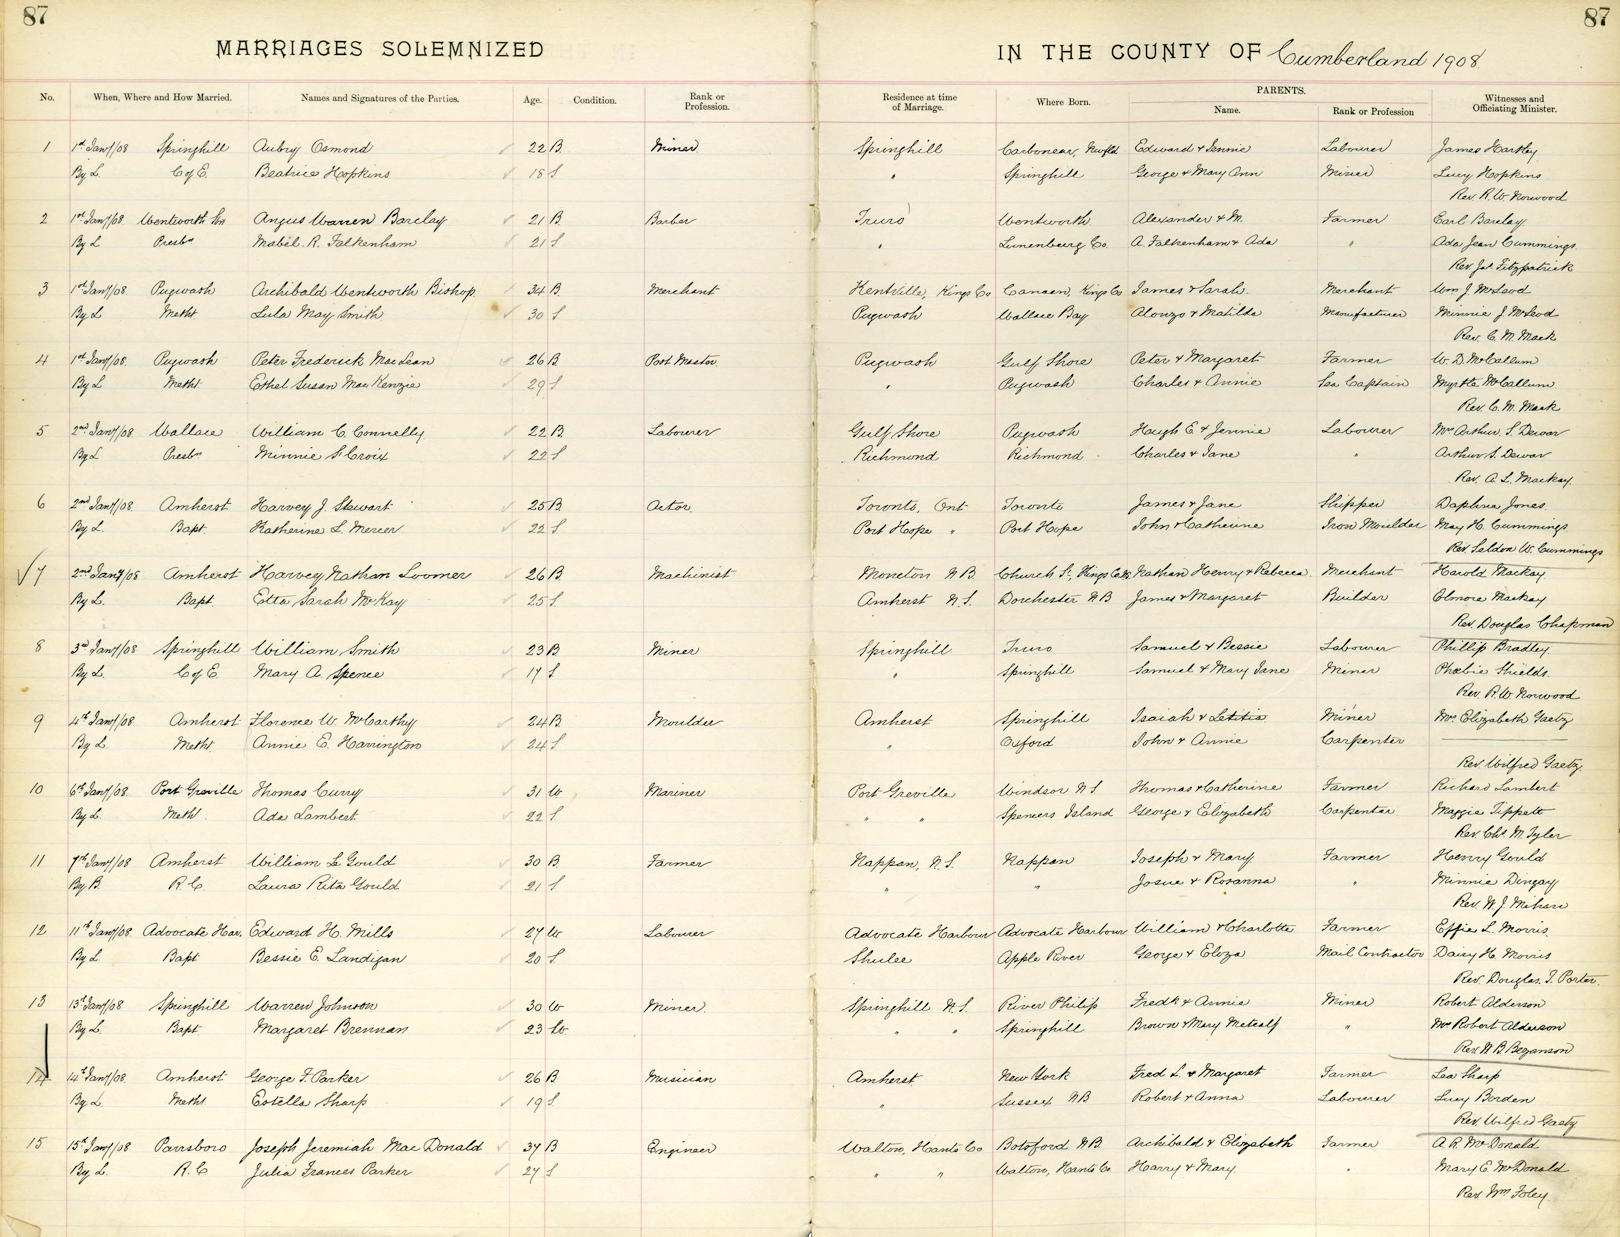 87 87
MARRIAGES SOLEMNIZED IN THE COUNTY OF Cumberland 1908
No. When, Where and How Married. Names and Signatures of the Parties. Age. Condition. Rank or Profession. Residence at time of Marriage. Where Born. PARENTS. Name. Rank or Profession Witnesses and Officiating Minister.
1 1st Jany/08 Springhill Aubry Osmond 22 B. Miner Springhill Carbonear, Newfld Edward & Jennie Labourer James Hartley
By L. C of E. Beatrice Hopkins 18 S " Springhill George & Mary Ann Miner Lucy Hopkins
Rev. R. W. Norwood
2 1st Jany/08 Wentworth Stn Angus Warren Barclay 21 B. Barber Truro Wentworth Alexander & M. Farmer Earl Barclay
By L Presbn Mabel. R. Falkenham 21 S " Lunenburg Co. A. Falkenham & Ada " Ada Jean Cummings
Rev. Jas Fitzpatrick
3 1st Jany/08 Pugwash Archibald Wentworth Bishop 34 B. Merchant Kentville, Kings Co Canaan, Kings Co James & Sarah. Merchant Wm J. McLeod
By L Metht Lula May Smith 30 S Pugwash Wallace Bay Alonzo & Matilda Manufacturer Minnie J McLeod
Rev. C. M. Mack
4 1st Jany/08. Pugwash Peter Frederick MacLean 26 B. Post Master Pugwash Gulf Shore Peter & Margaret Farmer W. D. McCallum
By L Metht. Ethel Susan MacKenzie 29 S " Pugwash Charles & Annie Sea Captain Myrtle McCallum
Rev. C. M. Mack
5 2nd Jany/08. Wallace William C. Connelly 22 B. Labourer Gulf Shore Pugwash Hugh E & Jennie Labourer Mrs Arthur S. Dewar
By L Presbn Minnie St Croix 22 S Richmond Richmond Charles & Jane " Arthur S. Dewar
Rev. A. L. Mackay.
6 2nd Jany/08 Amherst Harvey J Stewart 25 B. Actor Toronto, Ont Toronto James & Jane Shipper Daphna Jones
By L. Bapt. Katherine L. Mercer 22 S Port Hope " Port Hope John & Catherine Iron Moulder May H. Cummings
Rev. Seldon W. Cummings
7 2nd Jany/08 Amherst Harvey Nathan Loomer 26 B. Machinist Moncton N B. Church St., Kings Co N.S. Nathan Henry & Rebecca Merchant Harold Mackay
By L. Bapt. Etta Sarah McKay 25 S. Amherst N.S. Dorchester N B James & Margaret Builder Elmore Mackay
Rev. Douglas Chapman
8 3rd Jany/08 Springhill William Smith 23 B Miner Springhill Truro Samuel & Bessie Labourer Phillip Bradley
By L. C of E Mary A Spence 17 S " Springhill Samuel & Mary Jane Miner Phœbie Shields.
Rev. R. W. Norwood
9 4th Jany/08 Amherst Florence W. McCarthy 24 B Moulder Amherst Springhill Isaiah & Letitia Miner Mrs Elizabeth Gaetz
By L. Metht. Annie E. Harrington 24 S " Oxford John & Annie Carpenter
Rev Wilfred Gaetz.
10 6th Jany/08 Port Greville Thomas Curry 31 W Mariner Port Greville Windsor N S Thomas & Catherine Farmer Richard Lambert
By L. Metht. Ada Lambert 22 S. " " Spencers Island George & Elizabeth Carpenter Maggie Tippett
Rev. Chs. M. Tyler
11 7th Jany/08 Amherst William Le Gould 30 B. Farmer Nappan, N.S. Nappan Joseph & Mary Farmer Henry Gould
By B. R. C Laura Rita Gould 21 S " " Josue & Rosanna " Minnie Dingay
Rev. W. J. Mihan
12 11th Jany/08 Advocate Har. Edward H. Mills 27 W Labourer Advocate Harbour Advocate Harbour William & Charlotte Farmer Effie L Morris.
By L Bapt Bessie E. Landigan 20 S. Shulee Apple River George & Eloza Mail Contractor Daisy H. Morris
Rev. Douglas. J. Porter.
13 13th Jany/08 Springhill Warren Johnson 30 W Miner. Springhill N.S. River Philip Fredk & Annie Miner Robert Alderson
By L. Bapt. Margaret Brennan 23 W. " " Springhill Brown & Mary Metcalf " Mrs Robert Alderson
Rev. W. B. Bezanson
14 14th Jany/08. Amherst George F. Parker 26 B Musician Amherst New York Fred L. & Margaret Farmer Lea Sharp
By L Metht Estella Sharp 19 S. " Sussex N B Robert & Anna Labourer Lucy Borden
Rev. Wilfred Gaetz
15 15th Jany/08 Parrsboro Joseph Jeremiah Mac Donald 37 B Engineer Walton, Hants Co Botsford N B Archibald & Elizabeth Farmer A. R. McDonald
By L. R. C Julia Frances Parker 27 S " " Walton, Hants Co Harry & Mary. " Mary E. McDonald
Rev. Wm Foley.